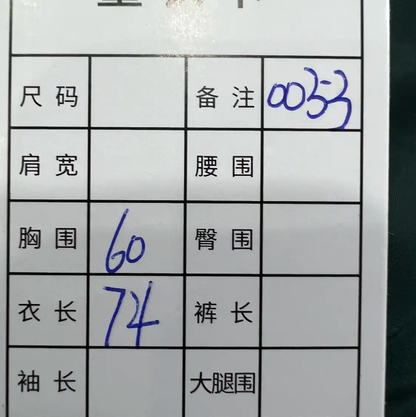 尺码 备注 0033
肩宽 腰围
胸围 60 臀围
衣长 74 裤长
袖长 大腿围